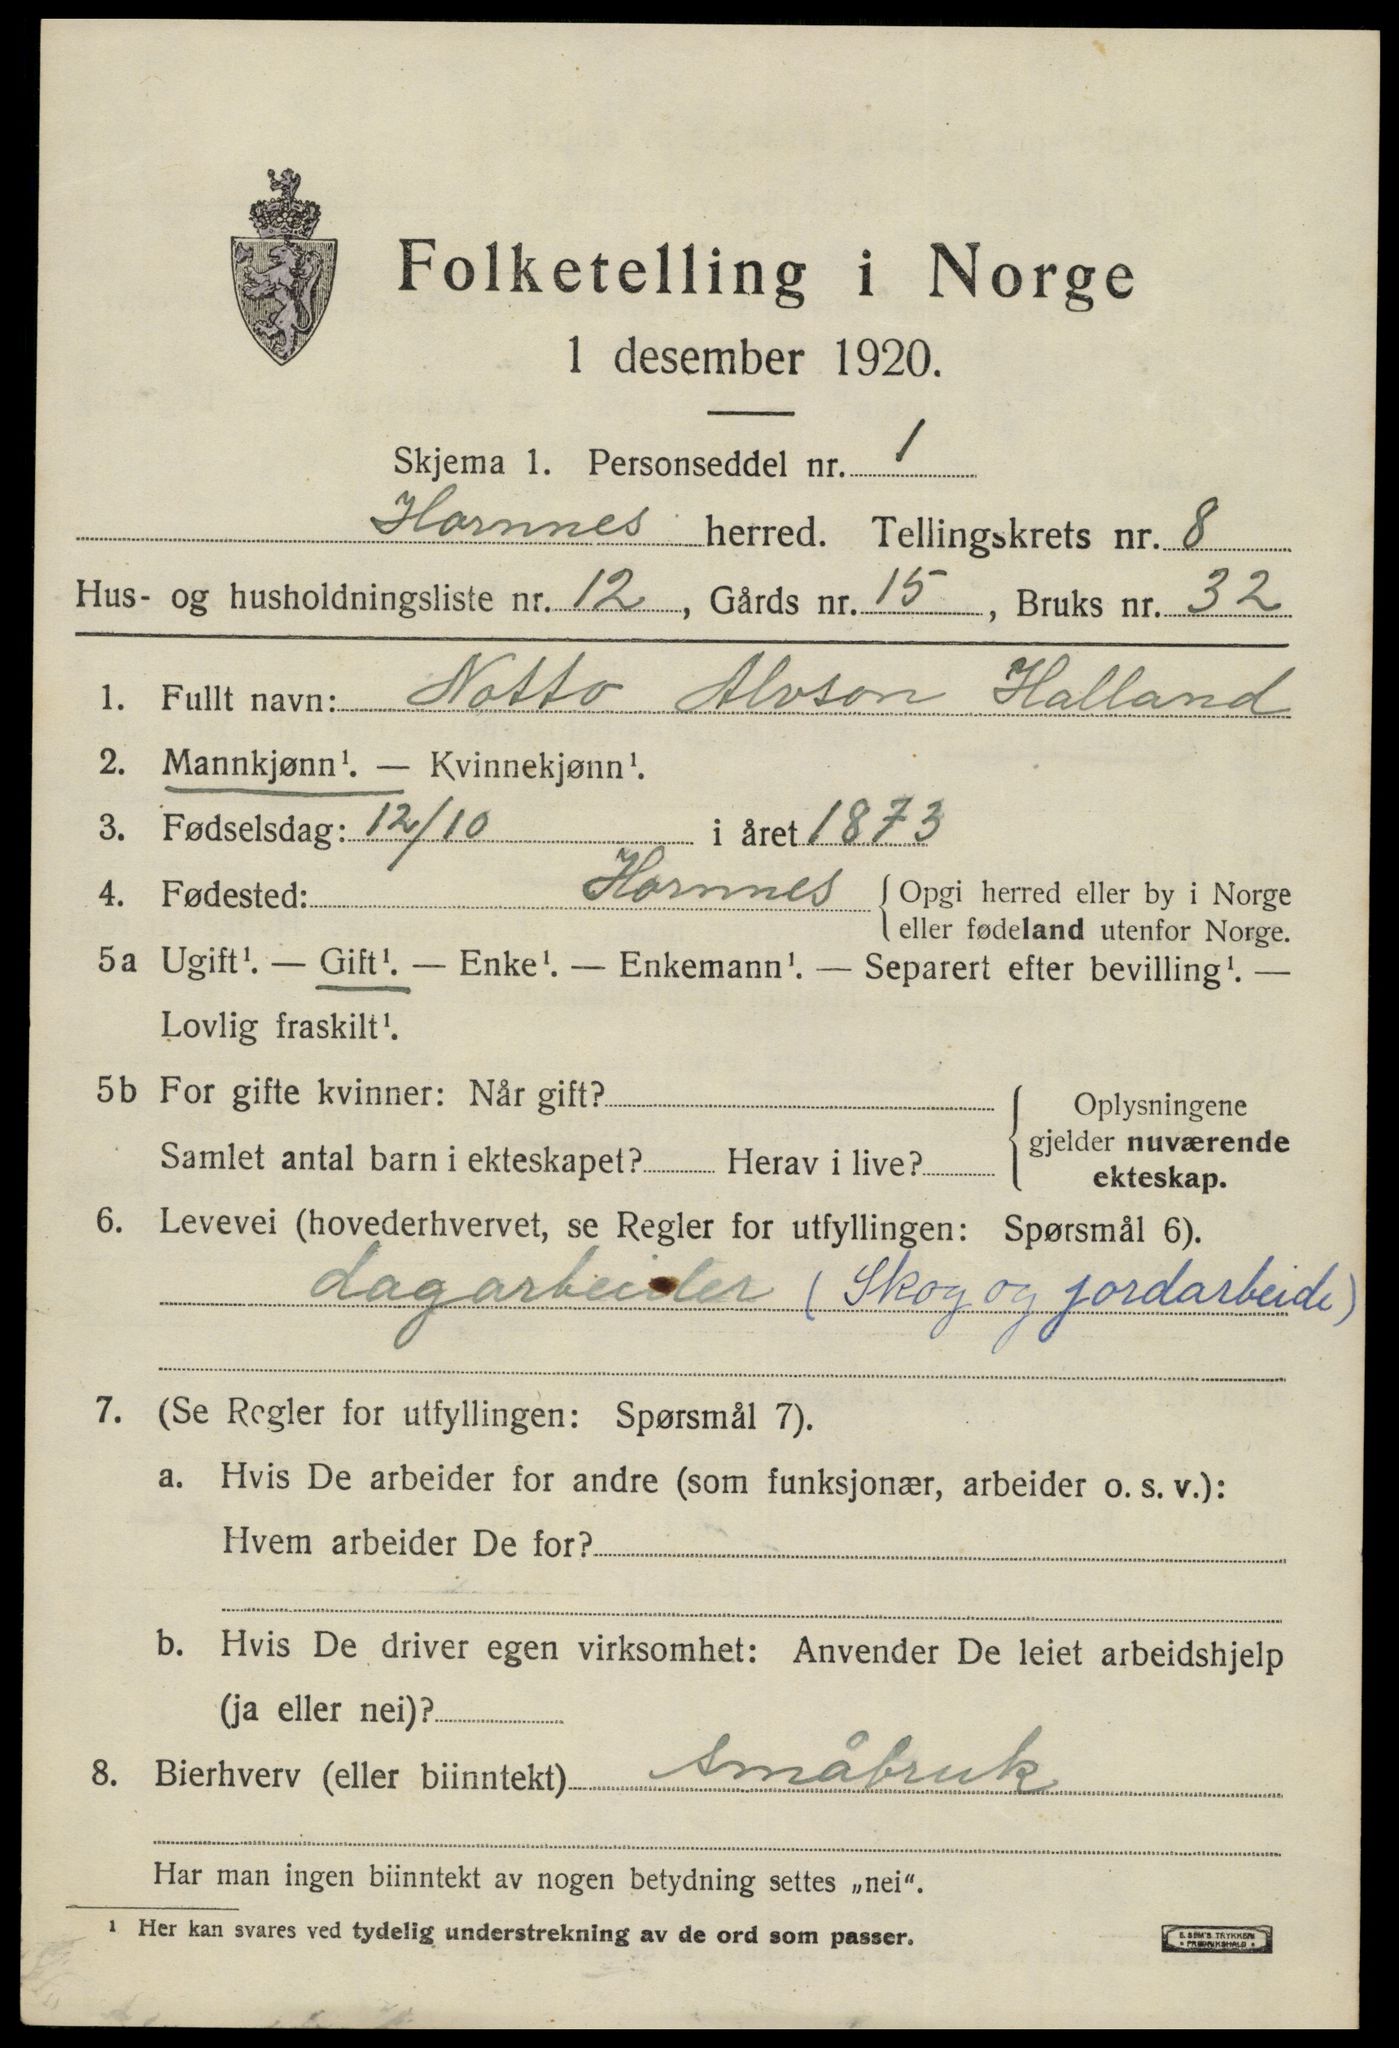 Folketelling i Norge
1 desember 1920.
Skjema 1. Personseddel nr. 1
Hornnes herred. Tellingskrets nr. 8
Hus- og husholdningsliste nr. 12, Gårds nr. 15, Bruks nr. 32
1. Fullt navn: Notto Alvson Halland
2. Mannkjønn¹. — Kvinnekjønn¹.
3. Fødselsdag: 12/10 i året 1873
4. Fødested: Hornnes { Opgi herred eller by i Norge
eller fødeland utenfor Norge.
5a Ugift¹. — Gift¹. — Enke¹. — Enkemann¹. — Separert efter bevilling¹. —
Lovlig fraskilt¹.
5b For gifte kvinner: Når gift?
Samlet antal barn i ekteskapet? Herav i live?
Oplysningene
gjelder nuværende
ekteskap.
6. Levevei (hovederhvervet, se Regler for utfyllingen: Spørsmål 6).
dagarbeider (Skog og jordarbeide)
7. (Se Regler for utfyllingen: Spørsmål 7).
a. Hvis De arbeider for andre (som funksjonær, arbeider o. s. v.):
Hvem arbeider De for?
b. Hvis De driver egen virksomhet: Anvender De leiet arbeidshjelp
(ja eller nei)?
8. Bierhverv (eller biinntekt) småbruk
Har man ingen biinntekt av nogen betydning settes „nei“.
¹ Her kan svares ved tydelig understrekning av de ord som passer.
E. SEM'S TRYKKERI
• FREDRIKSHALD •